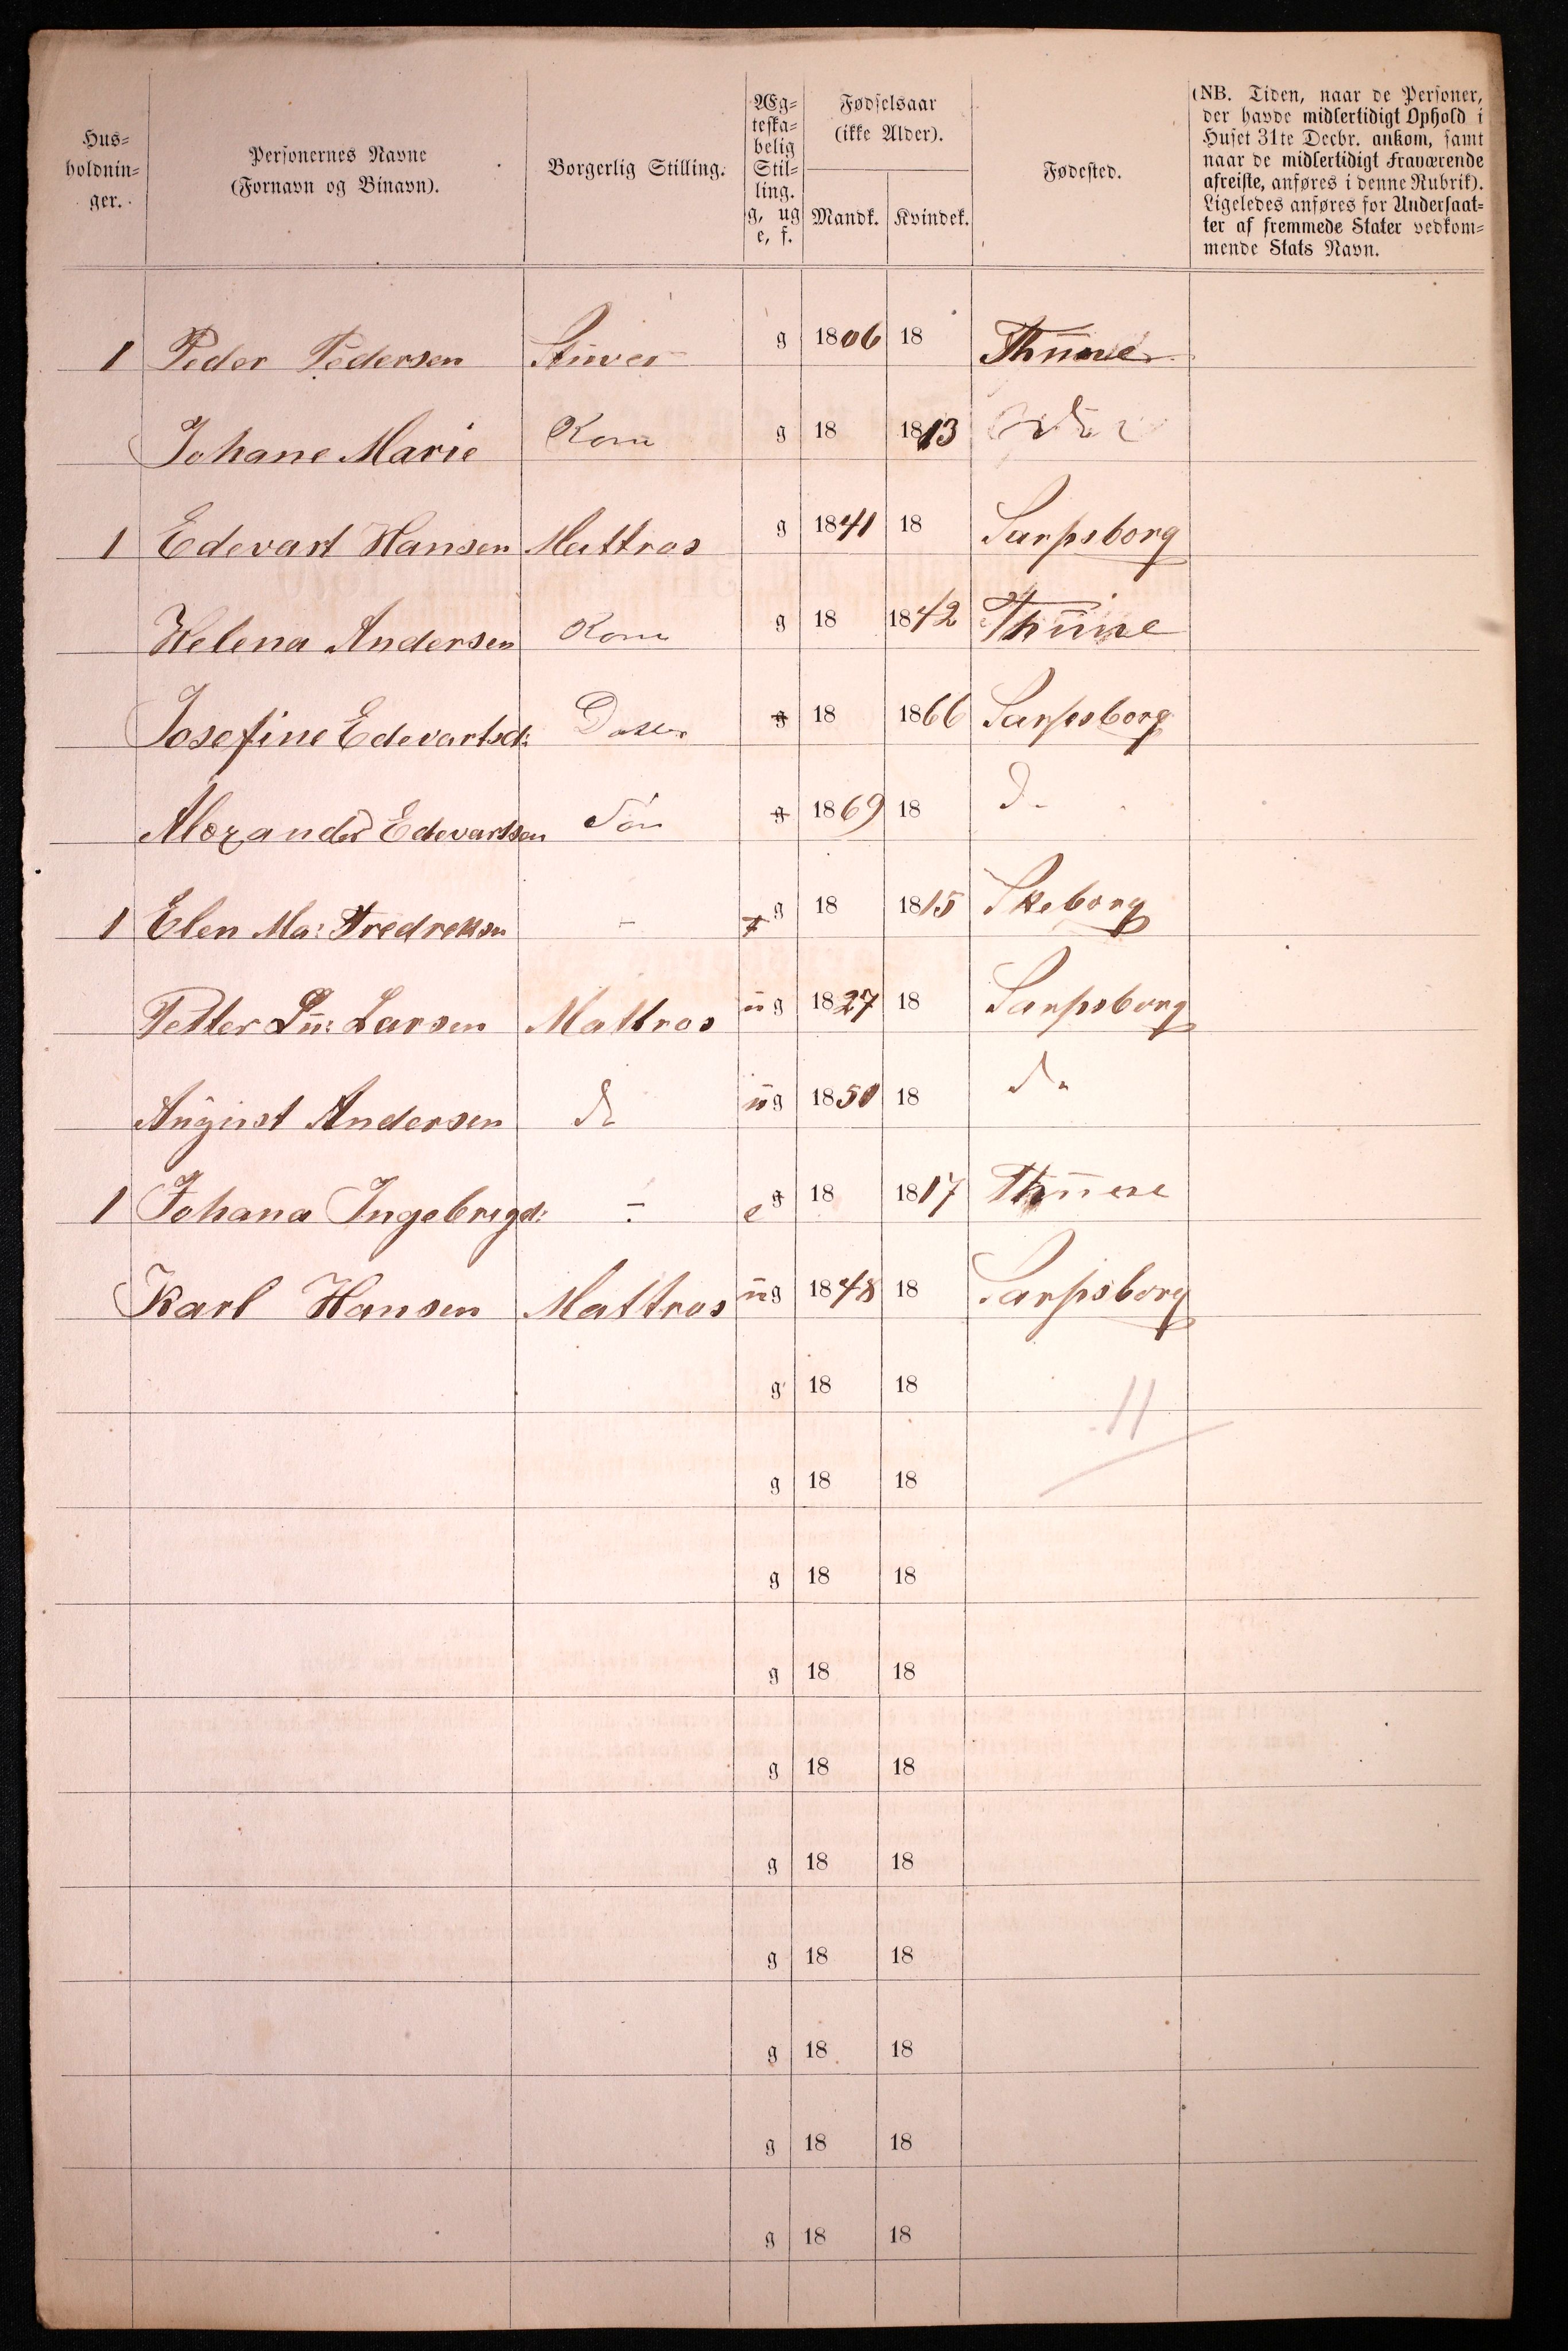 Hus-
holdnin-
ger.
Personernes Navne
(Fornavn og Binavn).
Borgerlig Stilling.
Æg-
teska-
belig
Stil-
ling.
g, ug
e, f.
Fødselsaar
(ikke Alder).
Mandk. Kvindek.
Fødested.
(NB. Tiden, naar de Personer,
der havde midlertidigt Ophold i
Huset 31te Decbr. ankom, samt
naar de midlertidigt Fraværende
afreiste, anføres i denne Rubrik).
Ligeledes anføres for Undersaat-
ter af fremmede Stater vedkom-
mende Stats Navn.
1 Peder Pedersen Stuver g 1806 18 Thune
Johane Marie Kone g 18 1813
1 Edevart Hansen Mattros g 1841 18 Sarpsborg
Helena Andersen Kone g 18 1842 Thune
Josefine Edevartsd: Datter g 18 1866 Sarpsborg
Alexander Edevartsen Søn g 1869 18 do
1 Elen Ma: Fredreksn - f g 18 1815 Skeborg
Petter Lu: Larsen Mattros ug 1827 18 Sarpsborg
August Andersen do ug 1850 18 do
1 Johana Ingebrigd: - e g 18 1817 Thune
Karl Hansen Mattros ug 1848 18 Sarpsborg
g 18 18 11
g 18 18
g 18 18
g 18 18
g 18 18
g 18 18
g 18 18
g 18 18
g 18 18
g 18 18